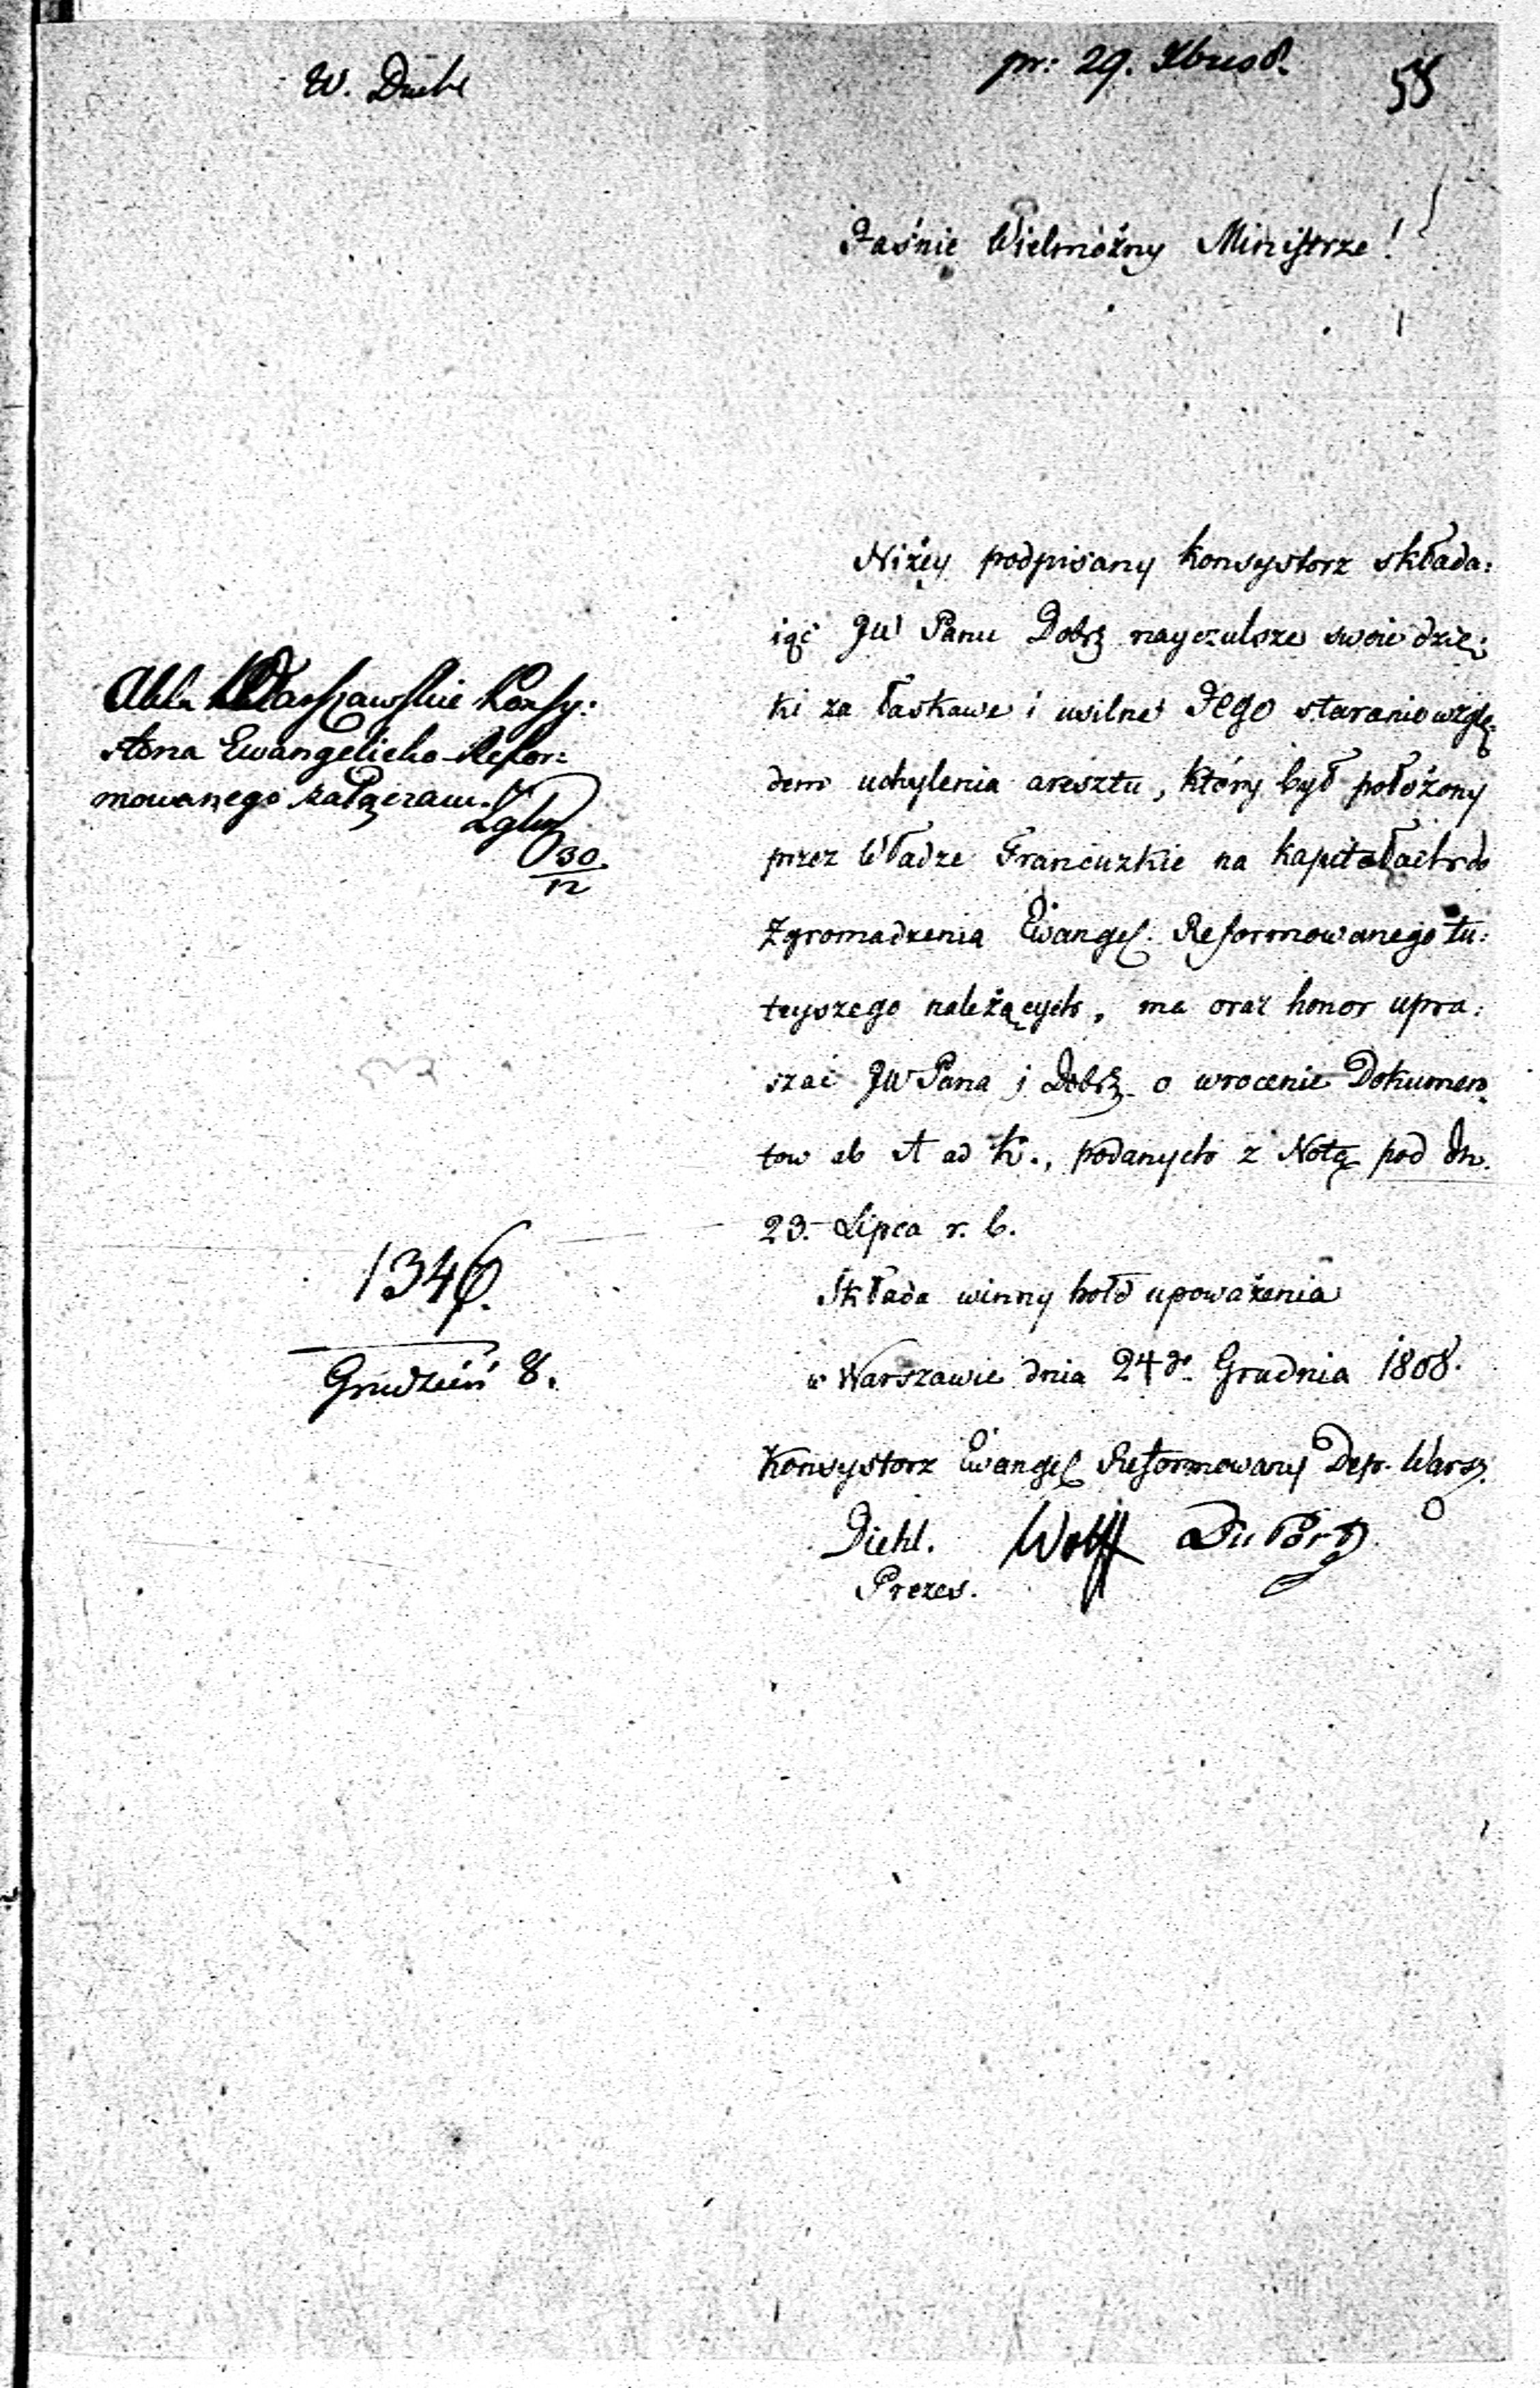 pr: 29. Xbr 808.
55
Jaśnie Wielmożny Ministrze!
Niżey podpisany Konsystorz składa:
iąc JW Panu Dobr nayczulsze swoie dzię:
ki za łaskawe i usilne Jego staranie wzglę:
dem uchylenia aresztu, który był położony
przez Władze Francuzkie na kapitałach do
Zgromadzenia Ewangel. Reformowanego tu:
teyszego należących, ma oraz honor upra:
szać JW Pana i Dobr. o wrocenie Dokumen:
tow ab A ad K., podanych z Notą pod dn.
23. Lipca r. b.
Składa winny hołd upoważenia
w Warszawie dnia 24go Grudnia 1808.
Konsystorz Ewangel Reformowany Dep. Warsz.
Diehl. Wolff DuPort
Prezes.
W.
Akta Warszawskie Konsy:
storza Ewangelicko-Refor:
mowanego załączam.
30.
12
1346.
Grudzień 8.